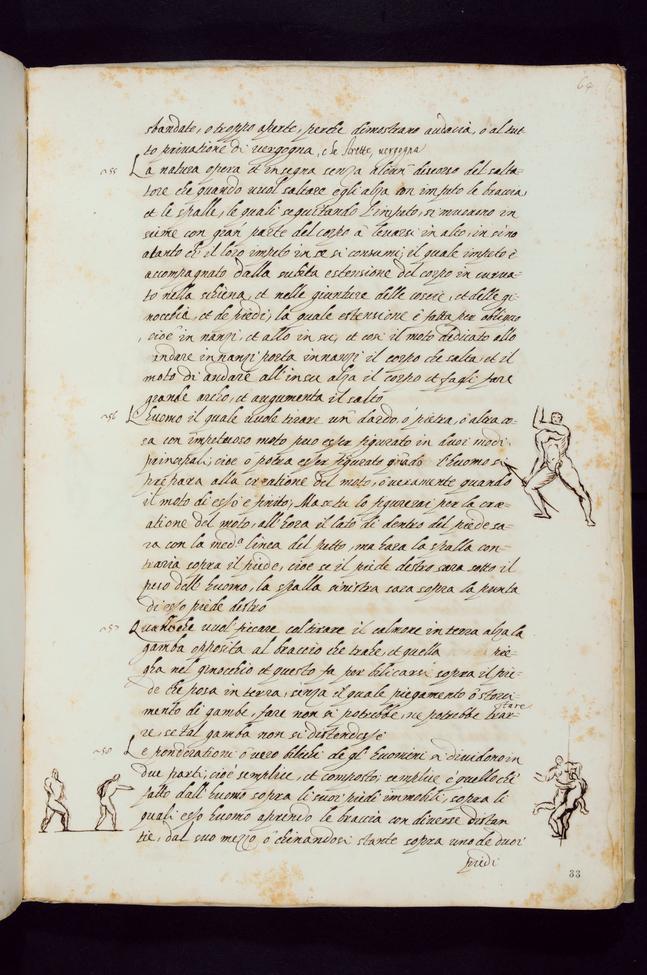 64
sbandate, o troppo aperte, perche dimostrano audacia, o al tut-
to privatione di vergogna, e le strette, vergogna
55 La natura opera et insegna senza alcun discorso del salta-
tore che quando vuol saltare egli alza con impeto le braccia,
et le spalle, le quali seguitando l'impeto, si muovano in
sieme con gran parte del corpo a levarsi in alto, in sino
atanto ch' il loro impeto in se si consumi; il quale impeto è
accompagnato dalla subita estensione del corpo in curva-
to nella schiena, et nelle giunture delle coscie, et delle gi-
nocchia, et de piedi, la quale estensione è fatta per obliquo
, cioe in nanzi, et allo in su, et cosi il moto dedicato allo
andare innanzi porta innanzi il corpo che salta, et il
moto di andare all'in su alza il corpo et fagli fare
grande arco, et augumenta il salto
56 L'huomo il quale vuole tirare un dardo, o pietra, o altra co-
sa con impetuoso moto puo esser figurato in duoi modi
principali, cioe o potra esser figurato quando l'huomo si
prepara alla creatione del moto, o veramente quando
il moto di esso è finito; Ma se tu lo figurerai per la cre-
atione del moto, all'hora il lato di dentro del piede sa-
ra con la med.a linea del petto, ma hara la spalla con-
traria sopra il piede, cioe se il piede destro sara sotto il
peso dell'huomo, la spalla sinistra sara sopra la punta
di esso piede destro
57 Quallche vuol ficcare, col tirare il calmone in terra alza la
gamba opposita al braccio che trahe, et quella pie-
gha nel ginocchio et questo fa per bilicarsi sopra il pie-
de che posa in terra, sinza il quale piegamento o storci-
mento di gambe, fare non si potrebbe, ne potrebbe trar
re, se tal gamba non si distendesse
58 Le ponderationi o vero bilichi de gl' huomini si dividono in
due parti, cioè semplice, et composto; semplice è quello ch'è
fatto dall'huomo sopra li suoi piedi immobili, sopra li
quali esso huomo aprendo le braccia con diverse distan-
tie, dal suo mezzo, o chinandosi stante sopra uno de duoi
piedi
33